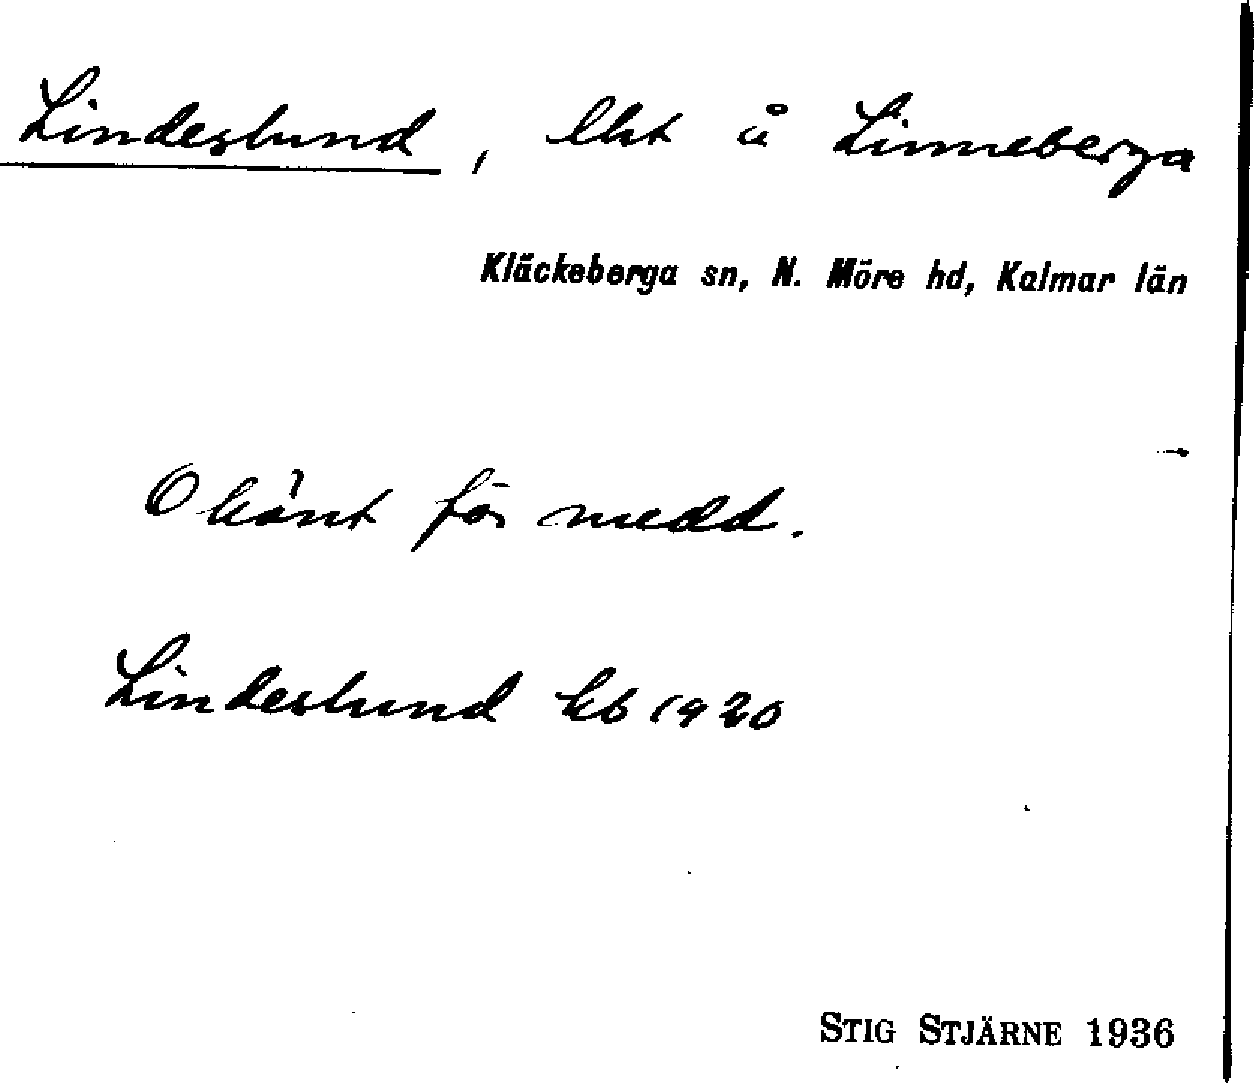 Lindeslund, lht å Linneberga
Kläckeberga sn, N. Möre hd, Kalmar län
Okänt för medd.
Lindeslund lb 1920
STIG STJÄRNE 1936